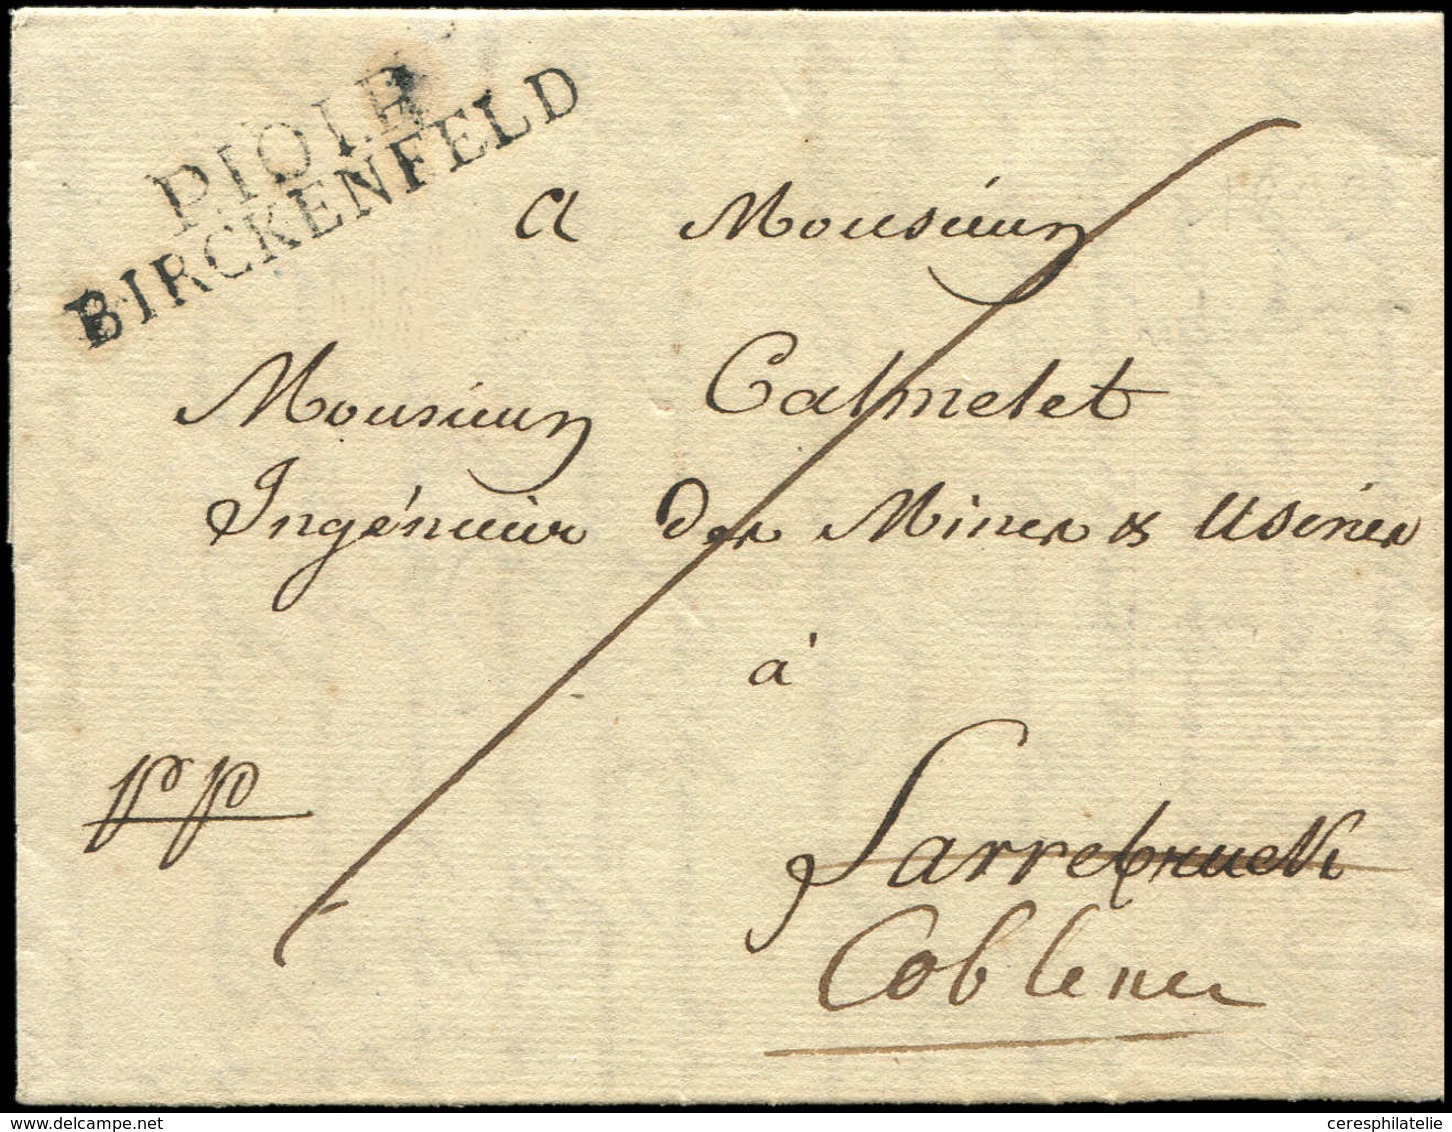 P.101.P.
BIRCKENFELD
A Monsieur
Monsieur Calmelet
Ingénieur des Mines & Usines
à
pp
Sarrebruck
Coblence
delcampe.net
ceresphilatelie